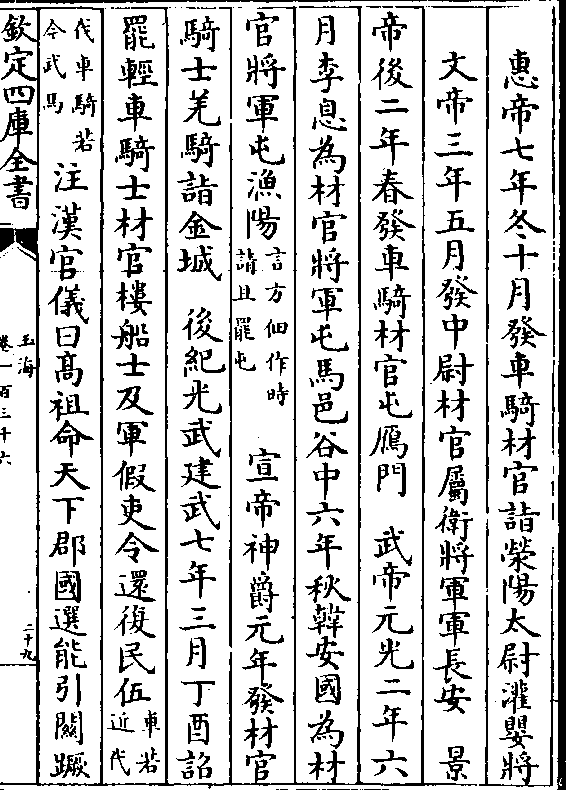 惠帝七年冬十月發車騎材官詣滎陽太尉灌嬰將
文帝三年五月發中尉材官屬衛將軍軍長安　景
帝後二年春發車騎材官屯鴈門　武帝元光二年六
月李息為材官將軍屯馬邑谷中六年秋韓安國為材
官將軍屯漁陽言方佃作時請且罷屯　宣帝神爵元年發材官
騎士羌騎詣金城　後紀光武建武七年三月丁酉詔
罷輕車騎士材官樓船士及軍假吏令還復民伍車若近代
伐車騎若今武馬　注漢官儀曰髙祖命天下郡國選能引闗蹶
欽定四庫全書
玉海
卷一百三十六
二十九